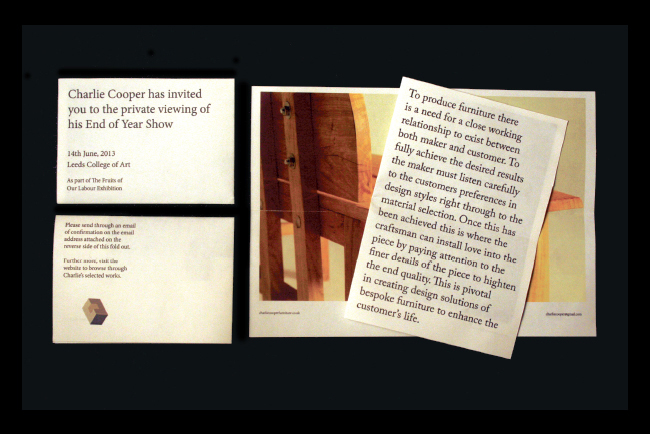 Charlie Cooper has invited
you to the private viewing of
his End of Year Show
14th June, 2013
Leeds College of Art
As part of The Fruits of
Our Labour Exhibition
Please send through an email
of confirmation on the email
address attached on the
reverse side of this fold out.
Further more, visit the
website to browse through
Charlie's selected works.
To produce furniture there
is a need for a close working
relationship to exist between
both maker and customer. To
fully achieve the desired results
the maker must listen carefully
to the customers preferences in
design styles right through to the
material selection. Once this has
been achieved this is where the
craftsman can install love into the
piece by paying attention to the
finer details of the piece to highten
the end quality. This is pivotal
in creating design solutions of
bespoke furniture to enhance the
customer's life.